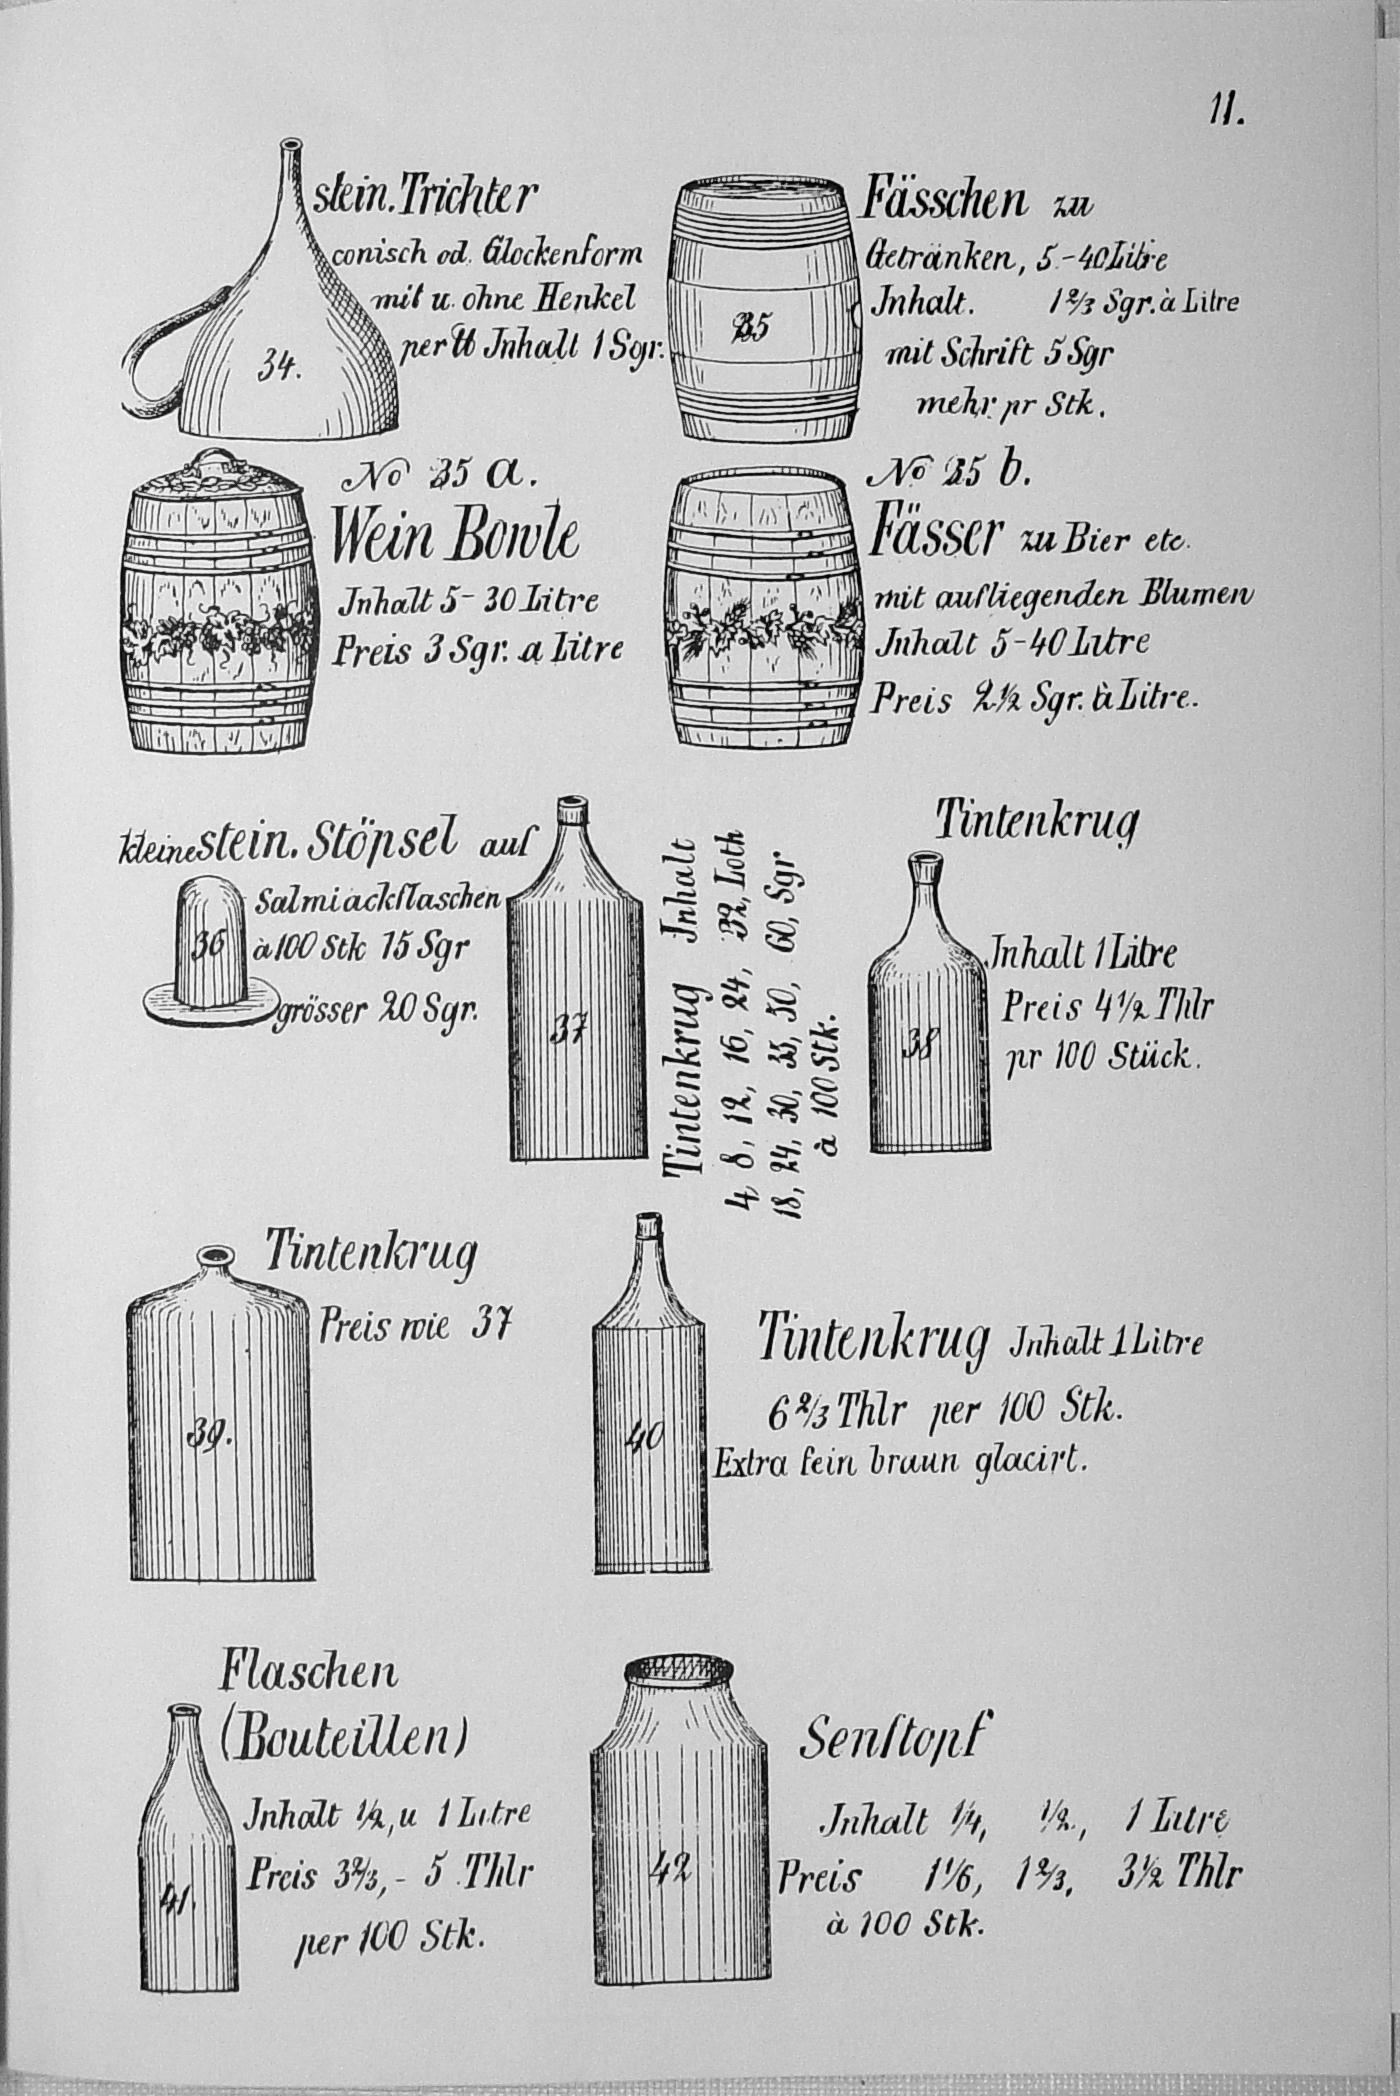 11.
stein. Trichter
conisch od. Glockenform
mit u. ohne Henkel
per ℔ Inhalt 1 Sgr.
34.
Fässchen zu
Getränken, 5-40 Litre
Inhalt. 1 2/3 Sgr. à Litre
mit Schrift 5 Sgr
mehr pr Stk.
35
No 35 a.
Wein Bowle
Inhalt 5-30 Litre
Preis 3 Sgr. a Litre
No 35 b.
Fässer zu Bier etc.
mit aufliegenden Blumen
Inhalt 5-40 Litre
Preis 2 1/2 Sgr. à Litre.
kleine stein. Stöpsel auf
Salmiackflaschen
à 100 Stk 15 Sgr
grösser 20 Sgr.
36
37
Tintenkrug Inhalt
4, 8, 12, 16, 24, 32, Loth
18, 24, 30, 35, 50, 60, Sgr
à 100 Stk.
Tintenkrug
Inhalt 1 Litre
Preis 4 1/2 Thlr
pr 100 Stück.
38
Tintenkrug
Preis wie 37
39.
40
Tintenkrug Inhalt 1 Litre
6 2/3 Thlr per 100 Stk.
Extra fein braun glacirt.
Flaschen
(Bouteillen)
Inhalt 1/2, u 1 Litre
Preis 3 2/3, - 5 Thlr
per 100 Stk.
41.
42
Senftopf
Inhalt 1/4, 1/2, 1 Litre
Preis 1 1/6, 1 2/3, 3 1/2 Thlr
à 100 Stk.